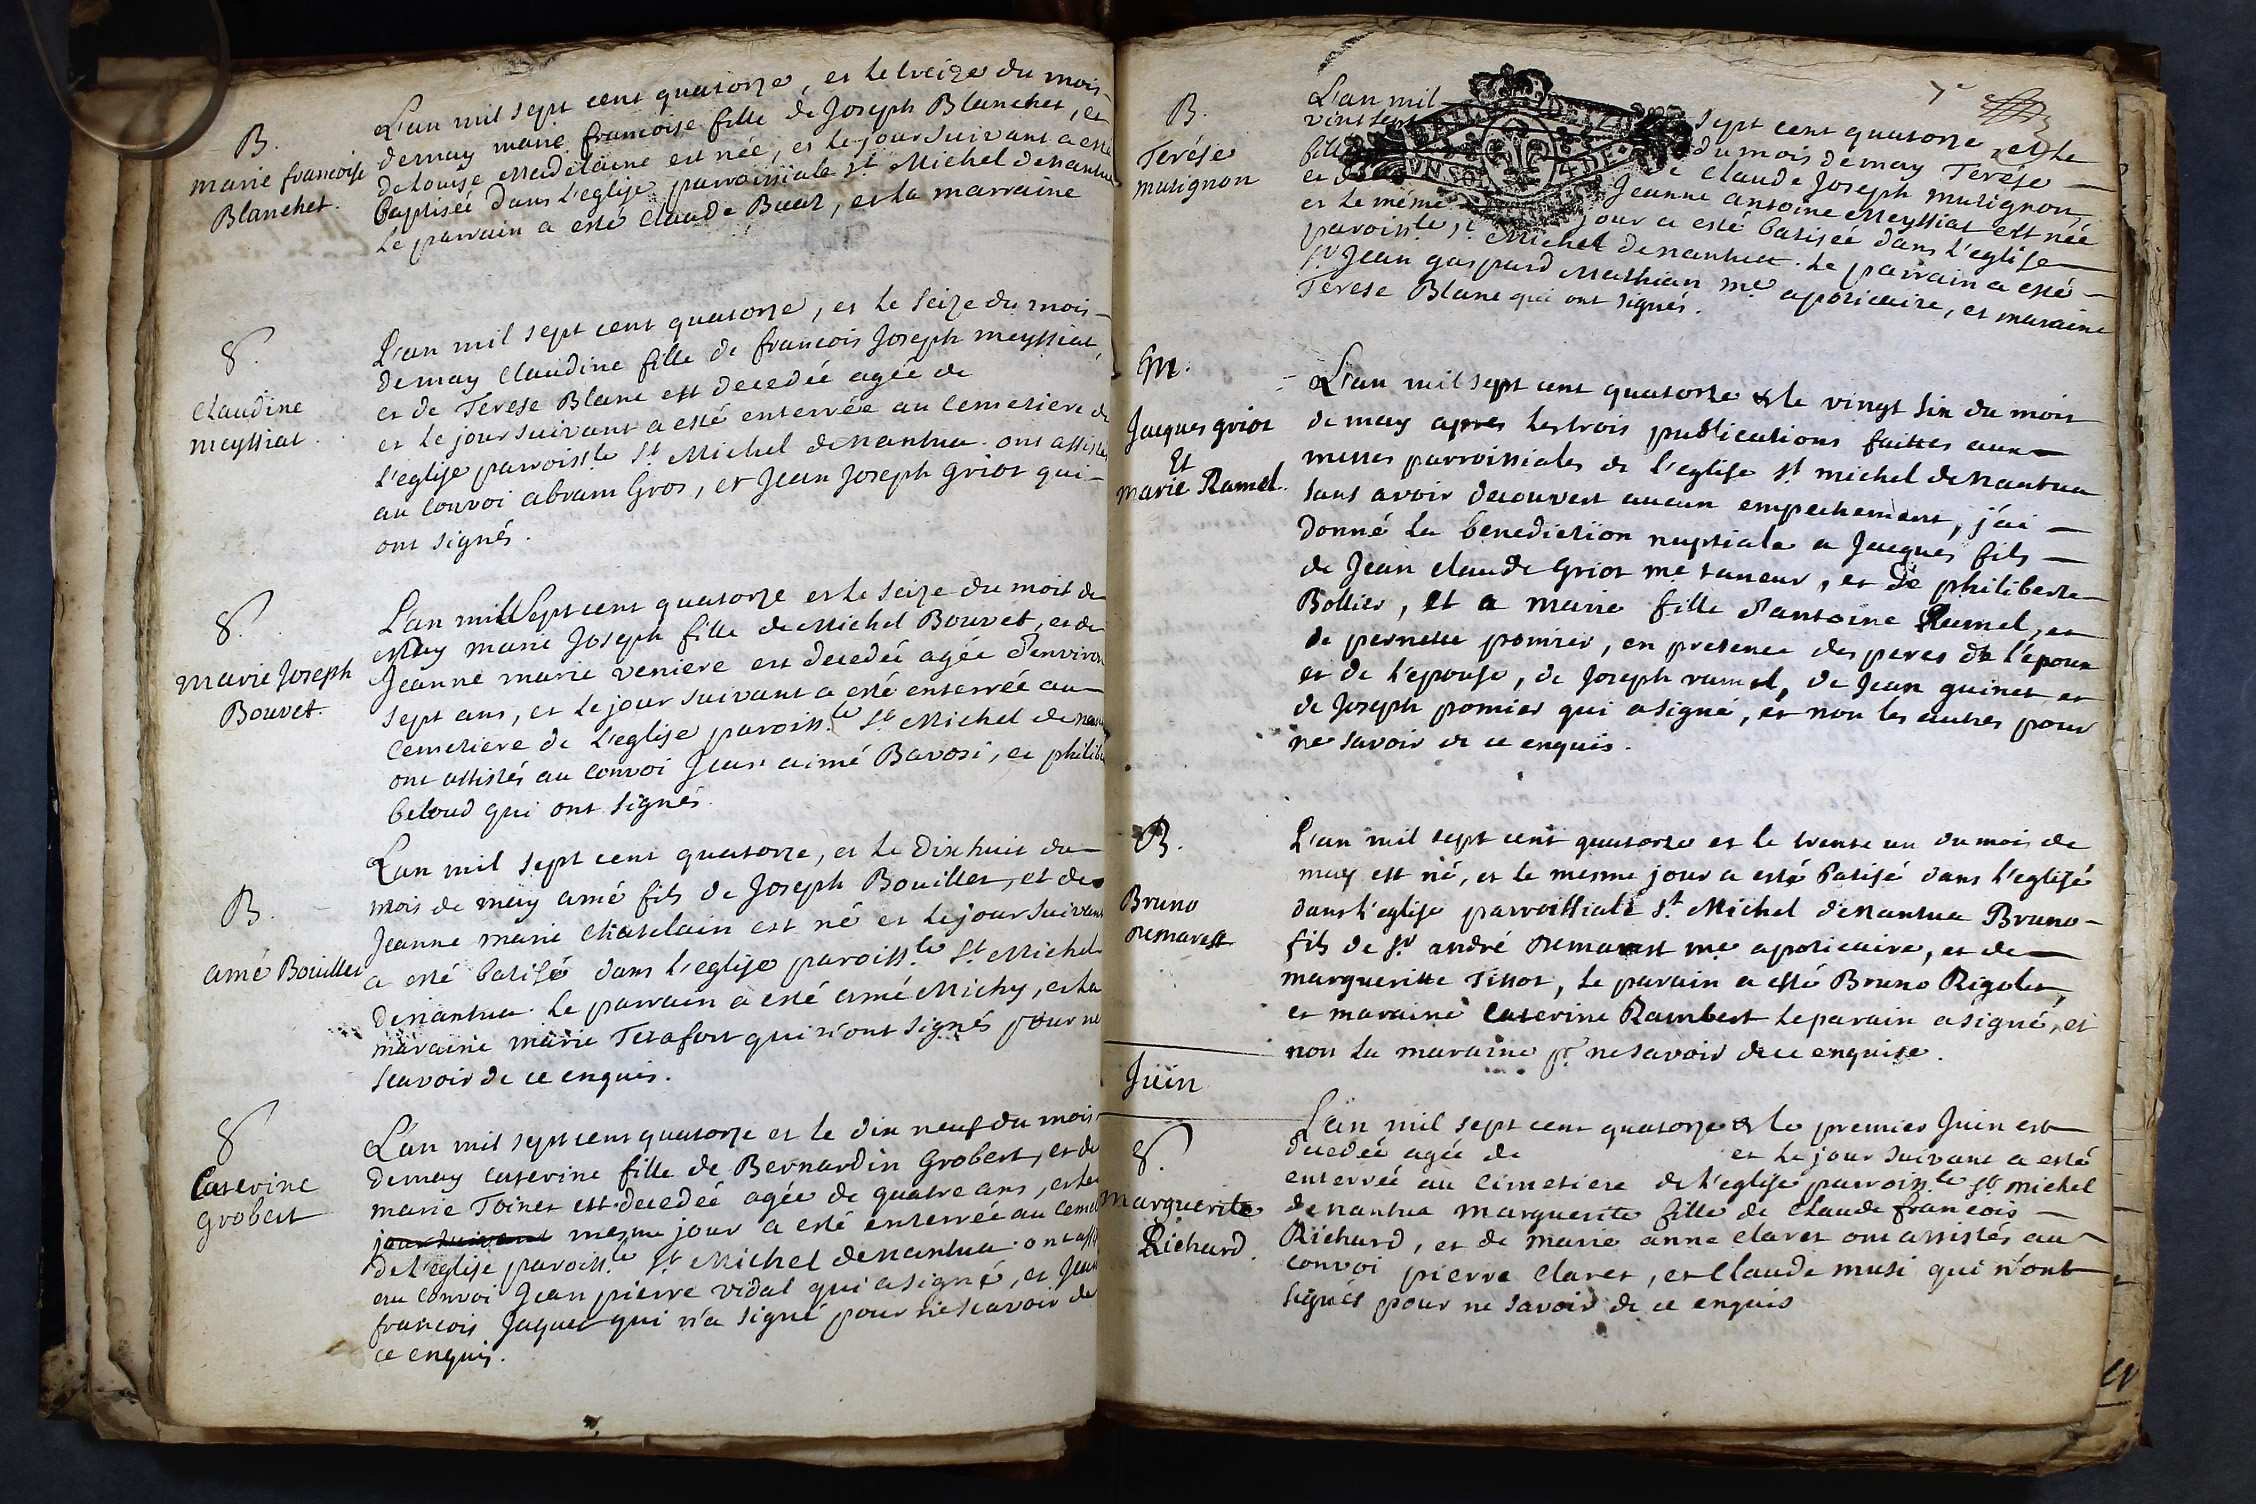 B.
marie francoise
Blanchet.
L'an mil sept cent quatorze, et le treize du mois
de may marie francoise fille de Joseph Blanchet, et
de Louise Madelaine est née, et le jour suivant a esté
baptisée dans l'eglise parroissiale St Michel de nantua
Le parrain a esté Claude Buat, et la marraine
8.
Claudine
meyssiat.
L'an mil sept cent quatorze, et le seize du mois
de may Claudine fille de francois Joseph meyssiat,
et de Terese Blanc est decedée agée de
et le jour suivant a esté enterrée au cemetiere de
l'eglise parroissle St Michel de nantua. ont assistés
au convoi abram Gros, et Jean Joseph Griot qui
ont signés.
8.
marie Joseph
Bouvet.
L'an mil sept cent quatorze et le seize du mois de
May marie Joseph fille de Michel Bouvet, et de
Jeanne marie veniere est decedée agée d'environ
sept ans, et le jour suivant a esté enterrée au
Cemetiere de l'eglise paroissle St Michel de nan
ont assistés au convoi Jean aimé Barosi, et philib
beloud qui ont signés.
B.
amé Bouillet
L'an mil sept cent quatorze, et le dix huit du
mois de may amé fils de Joseph Bouillet, et de
Jeanne marie Chatelain est né et le jour suivant
a esté batisé dans l'eglise paroissle St Michel
de nantua. Le parrain a esté amé Michy, et la
maraine marie Terafort qui n'ont signés pour ne
scavoir de ce enquis.
8
Caterine
Grobert
L'an mil sept cent quatorze et le dix neuf du mois
de may caterine fille de Bernardin Grobert, et de
marie Toinet est decedée agée de quatre ans, et le
jour suivant mesme jour a esté enterrée au Cemet
de l'eglise paroissle St Michel de nantua. ont assi
au convoi Jean pierre vidal qui a signé, et Jean
francois Jaquet qui n'a signé pour ne scavoir de
ce enquis.
7e
B.
Terése
mutignon
L'an mil sept cent quatorze, et le
vint sept du mois de may Terése
fille de Claude Joseph mutignon,
et de Jeanne antoine Meyssiat est née
et le méme jour a esté batisée dans l'eglise
paroissle St Michel de nantua. Le parrain a esté
sr Jean gaspard Mathian me apoticaire, et maraine
Terese Blanc qui ont signés.
M.
Jacques griot
Et
marie Ramel.
L'an mil sept cent quatorze & le vingt six du mois
de may apres les trois publications faittes aux
messes parroissiales de l'eglise St michel de nantua
sans avoir decouvert aucun empechement, j'ai
donné la benediction nuptiale a Jacques fils
de Jean claude Griot me taneur, et de philiberte
Bollier, et a marie fille d'antoine Ramel, et
de pernette pomier, en presence des peres de l'epoux
et de l'epouse, de Joseph ramel, de Jean guinet et
de Joseph pomier qui a signé, et non les autres pour
ne savoir de ce enquis.
B.
Bruno
Demarest
L'an mil sept cent quatorze et le trente un du mois de
may est né, et le mesme jour a esté batisé dans l'eglisé
dans l'eglise parroissiale St Michel de nantua Bruno
fils de sr andré Demarest me apoticaire, et de
margueritte Tissot, le parain a esté Bruno Rigolet,
et maraine Caterine Rambert le parain a signé, et
non la maraine pr ne savoir de ce enquise.
Juin
8.
marguerite
Richard.
L'an mil sept cent quatorze & le premier Juin est
decedée agée de et le jour suivant a esté
enterrée au cimetiere de l'eglise parroissle St michel
de nantua marguerite fille de claude francois
Richard, et de marie anne claret ont assistés au
convoi pierre claret, et Claude musi qui n'ont
signés pour ne savoir de ce enquis